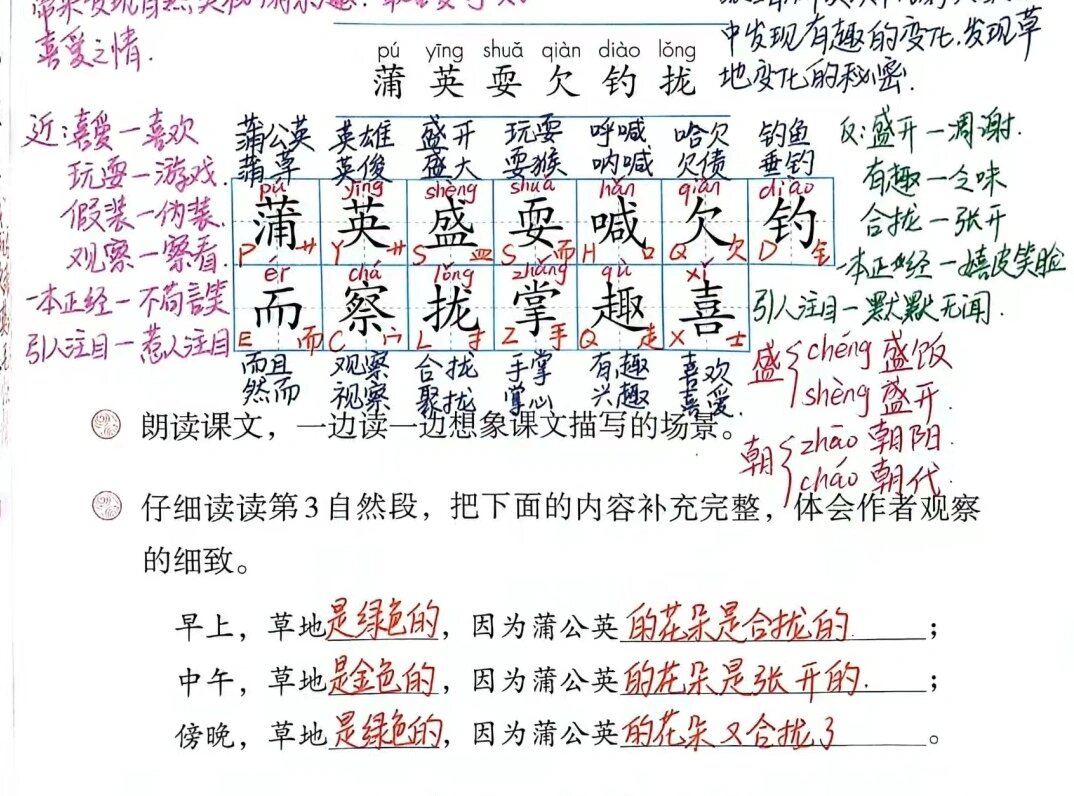 喜爱之情.
中发现有趣的变化.发现草
地变化的秘密.
pú yīng shuǎ qiàn diào lǒng
蒲 英 耍 欠 钓 拢
近:喜爱一喜欢
玩耍一游戏.
假装一伪装.
观察一察看.
一本正经一不苟言笑
引人注目一惹人注目
蒲公英 英雄 盛开 玩耍 呼喊 哈欠 钓鱼
蒲草 英俊 盛大 耍猴 呐喊 欠债 垂钓
pú yīng shèng shuǎ hǎn qiàn diào
蒲 英 盛 耍 喊 欠 钓
P 艹 Y 艹 S 皿 S 而 H 口 Q 欠 D 钅
ér chá lǒng zhǎng qù xǐ
而 察 拢 掌 趣 喜
E 而 C 宀 L 扌 Z 手 Q 走 X 士
而且 观察 合拢 手掌 有趣 喜欢
然而 视察 聚拢 掌心 兴趣 喜爱.
反:盛开一凋谢.
有趣一乏味
合拢一张开
一本正经一嬉皮笑脸
引人注目一默默无闻.
盛 chéng 盛饭
shèng 盛开.
朝 zhāo 朝阳.
cháo 朝代.
朗读课文，一边读一边想象课文描写的场景。
仔细读读第3自然段，把下面的内容补充完整，体会作者观察
的细致。
早上，草地是绿色的，因为蒲公英的花朵是合拢的.；
中午，草地是金色的，因为蒲公英的花朵是张开的.；
傍晚，草地是绿色的，因为蒲公英的花朵又合拢了。